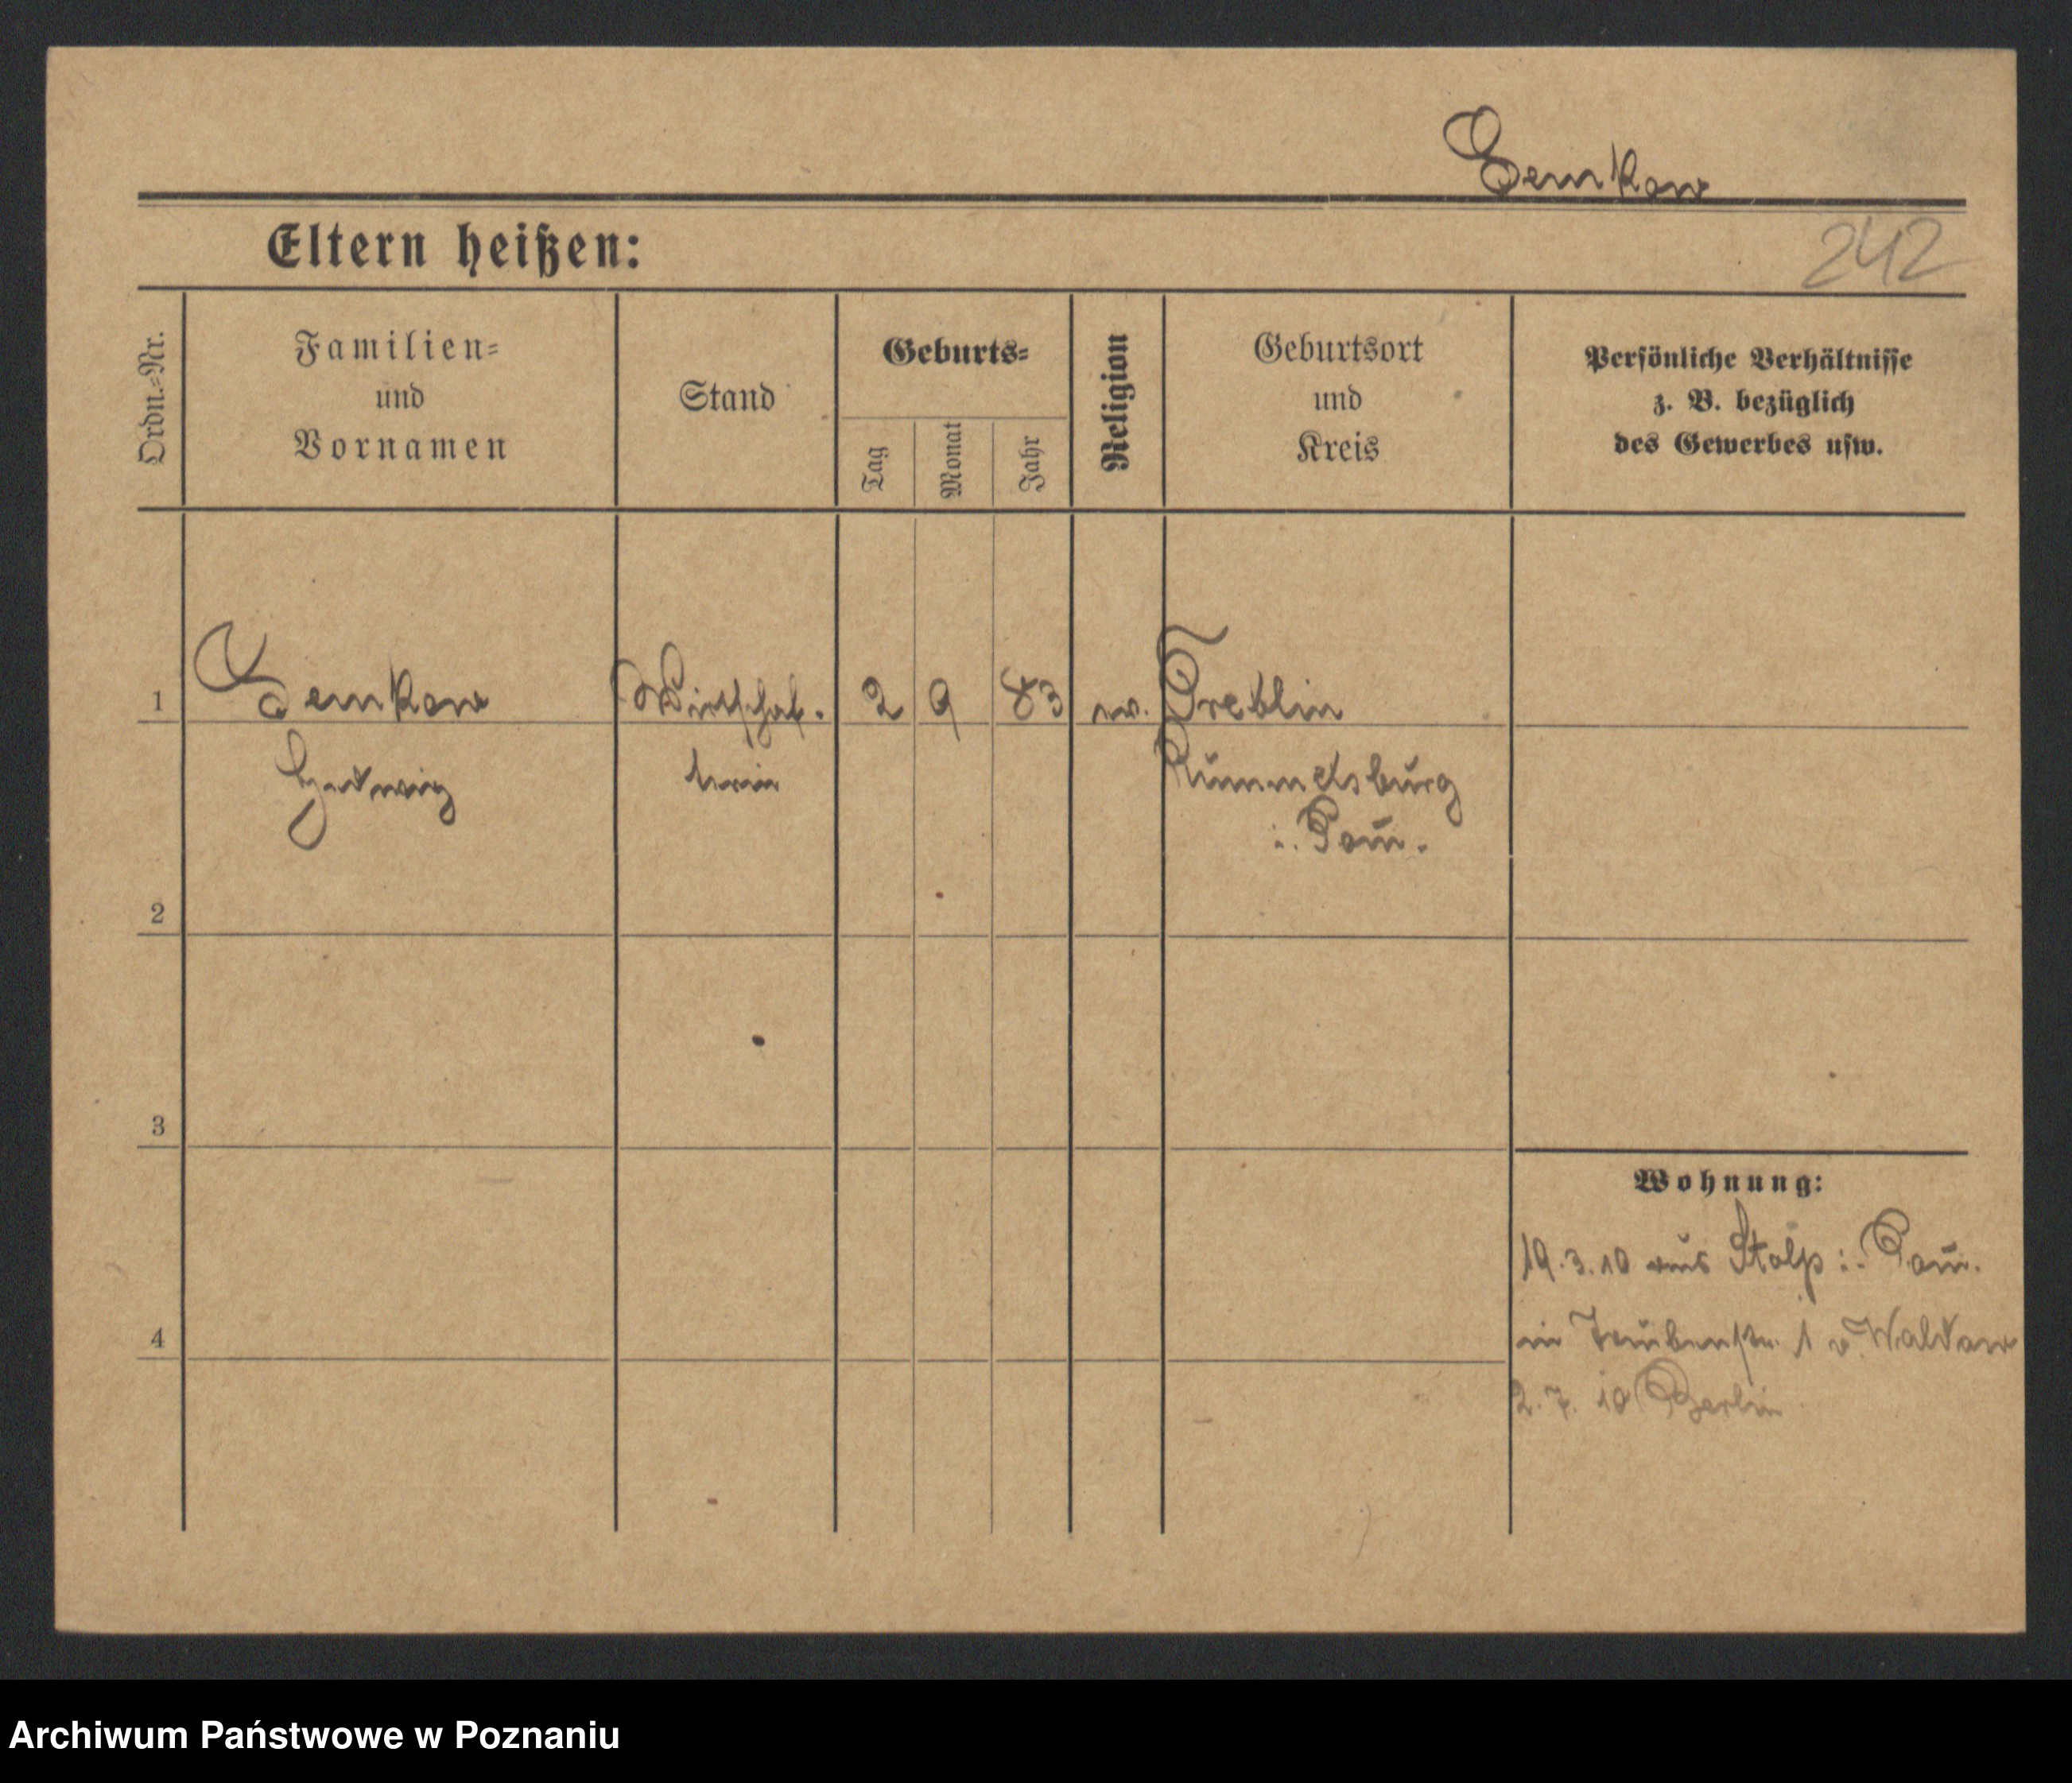 Semkow
242
Eltern heißen:
Ordn.=Nr.
Familien=
und
Vornamen
Stand
Geburts=
Tag
Monat
Jahr
Religion
Geburtsort
und
Kreis
Persönliche Verhältnisse
z. B. bezüglich
des Gewerbes usw.
1
Semkow
Hedwig
Wirtschaf.
terin
2
9
83
ev.
Treblin
Rummelsburg
i. Pom̄.
2
3
4
Wohnung:
19.3.10 aus Stolp i. Pom̄.
in 1 v. Waldow
2.7.10 Berlin
Archiwum Państwowe w Poznaniu